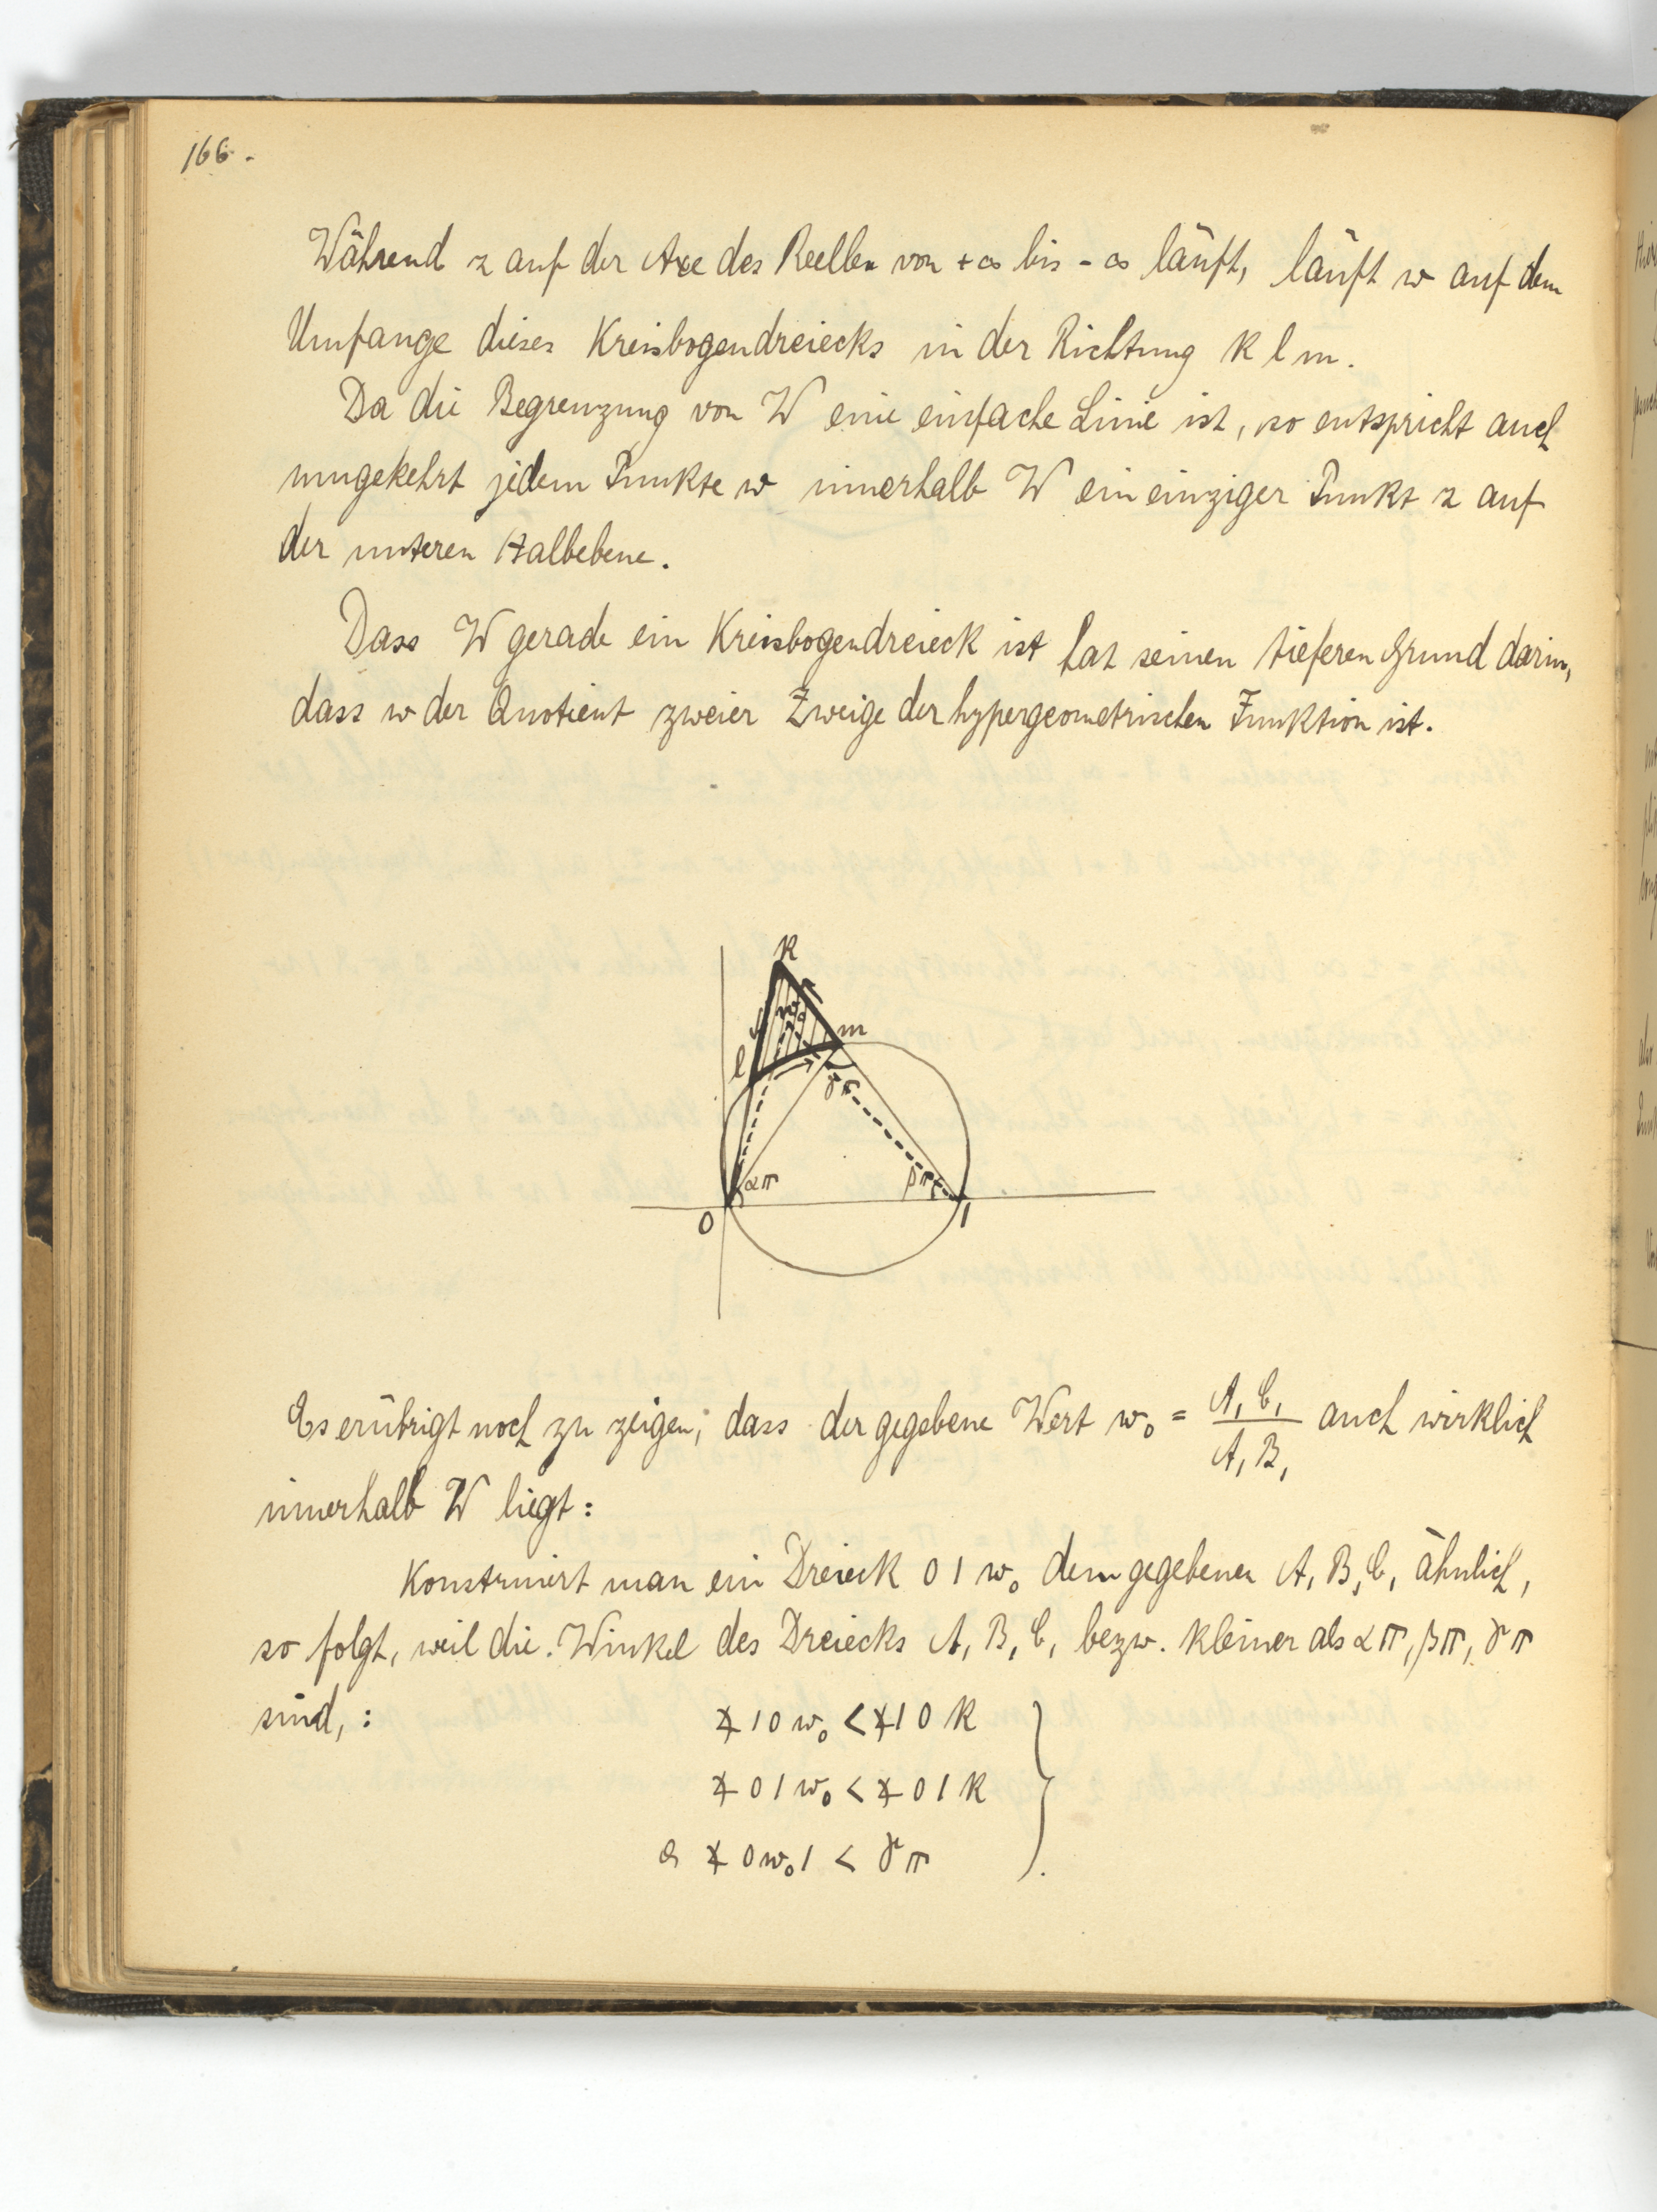 166.
Während z auf der Axe des Reellen von +∞ bis -∞ läuft, läuft w auf dem
Umfange dieses Kreisbogendreiecks in der Richtung k l m.
Da die Begrenzung von W eine einfache Linie ist, so entspricht auch
umgekehrt jedem Punkte w innerhalb W ein einziger Punkt z auf
der unteren Halbebene.
Dass W gerade ein Kreisbogendreieck ist hat seinen tieferen Grund darin,
dass w der Quotient zweier Zweige der hypergeometrischen Funktion ist.
k
w₀
m
l
γπ
απ
βπ
0
1
Es erübrigt noch zu zeigen, dass der gegebene Wert w₀ = A₁C₁/A₁B₁ auch wirklich
innerhalb W liegt:
Konstruiert man ein Dreieck 0 1 w₀ dem gegebenen A₁B₁C₁ ähnlich,
so folgt, weil die Winkel des Dreiecks A₁B₁C₁ bezw. kleiner als απ, βπ, γπ
sind, :
∢ 1 0 w₀ < ∢ 1 0 k
∢ 0 1 w₀ < ∢ 0 1 k
& ∢ 0 w₀ 1 < γπ